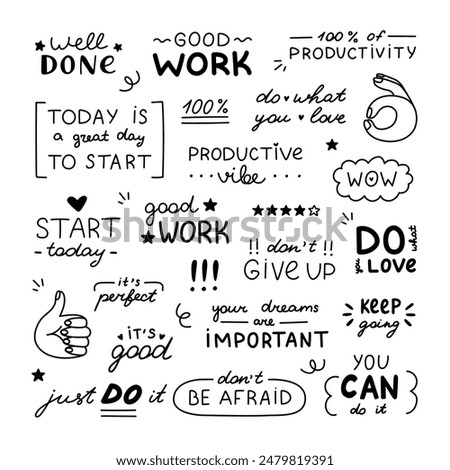 well
DONE
GOOD
WORK
100% of
PRODUCTIVITY
TODAY IS
a great day
TO START
100%
do what
you love
PRODUCTIVE
vibe
WOW
START
today
good
WORK
!! don't !!
GIVE UP
DO what
you LOVE
!!!
it's
perfect
your dreams
are
IMPORTANT
KEEP
going
it's
good
just DO it
don't
BE AFRAID
YOU
CAN
do it
shutterstock
IMAGE ID: 2479819391
www.shutterstock.com